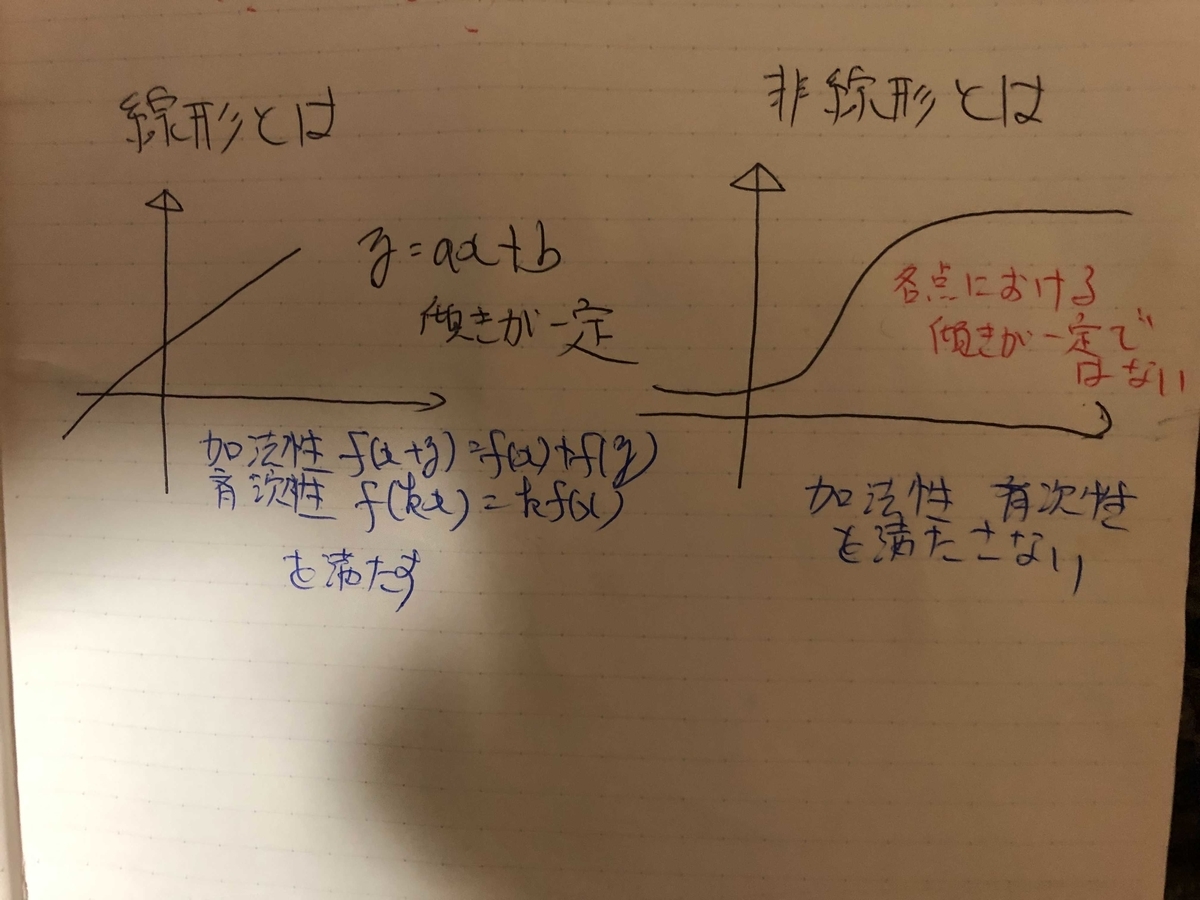 線形とは
y=ax+b
傾きが一定
加法性 f(x+y)=f(x)+f(y)
斉次性 f(kx)=kf(x)
を満たす
非線形とは
各点における
傾きが一定で
はない
加法性 斉次性
を満たさない